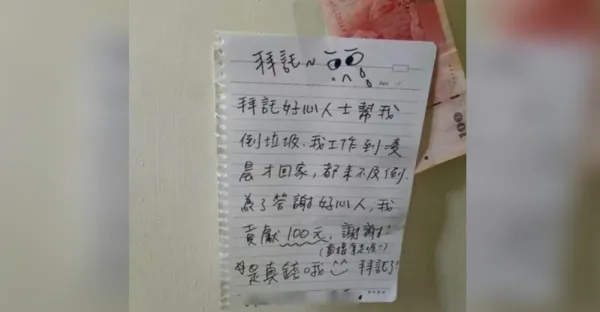 拜託~
拜託好心人士幫我
倒垃圾、我工作到凌
晨才回家，都來不及倒.
為了答謝好心人，我
貢獻100元，謝謝!
(直接拿走ㄛ!)
是真錢哦 拜託了!
100